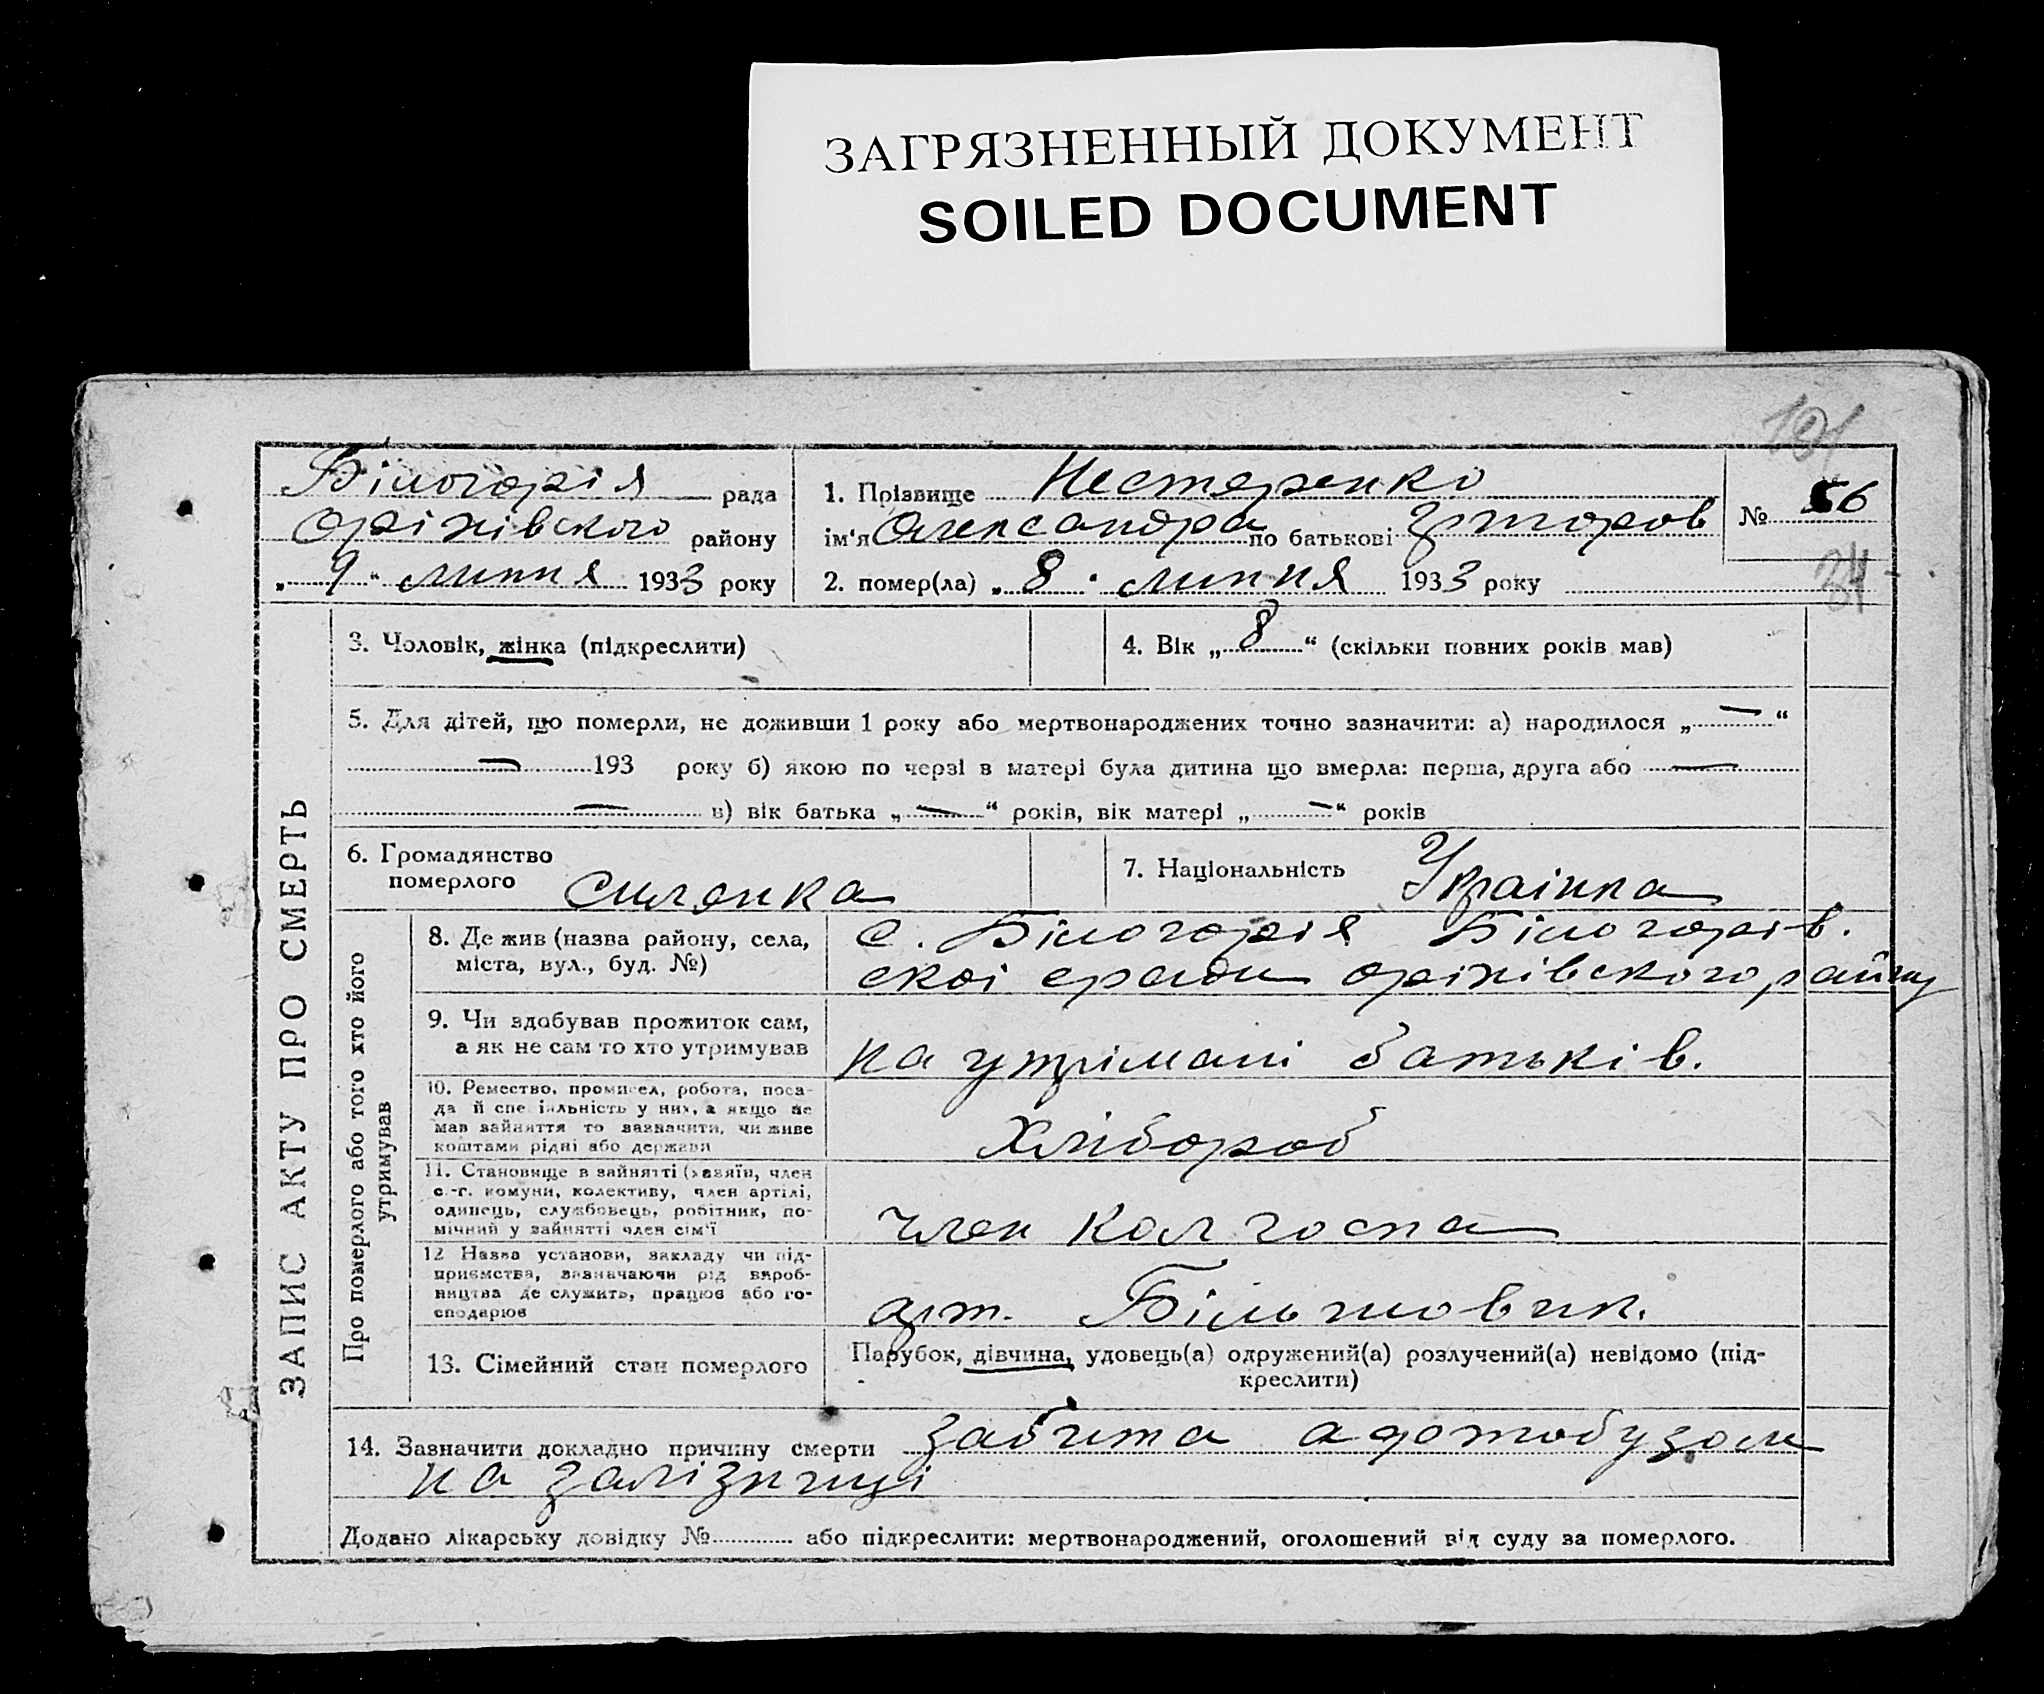 ЗАГРЯЗНЕННЫЙ ДОКУМЕНТ
SOILED DOCUMENT
191
Білогорія рада
Оріхівского району
„ 9 “ липня 1933 року
1. Прізвище Нестеренко
ім'я Олександра по батькові
2. помер(ла) „ 8 “ липня 1933 року
№ 56
34
ЗАПИС АКТУ ПРО СМЕРТЬ
3. Чоловік, жінка (підкреслити)
4. Вік „ 8 “ (скільки повних років мав)
5. Для дітей, що померли, не доживши 1 року або мертвонароджених точно зазначити: а) народилося „ — “
— 193 року б) якою по черзі в матері була дитина що вмерла: перша, друга або —
— в) вік батька „ — “ років, вік матері „ — “ років
6. Громадянство
померлого селянка
7. Національність Українка
Про померлого або того хто його
утримував
8. Де жив (назва району, села,
міста, вул., буд. №)
с. Білогорія Білогорів.
скоі сради оріхівского району
9. Чи здобував прожиток сам,
а як не сам то хто утримував
на утрімані батьків.
10. Ремество, промисел, робота, поса-
да й спеціяльність у них, а якщо не
мав зайняття то зазначити, чи живе
коштами рідні або держави
Хлібороб
11. Становище в зайнятті (хазяїн, член
с.-г. комуни, колективу, член артілі,
одинець, службовець, робітник, по-
мічний у зайнятті член сім'ї
член колгоспа
12 Назва установи, закладу чи під-
приємства, зазначаючи рід вироб-
ництва де служить, працює або го-
сподарює
арт. Більшовик.
13. Сімейний стан померлого
Парубок, дівчина, удовець(а) одружений(а) розлучений(а) невідомо (під-
креслити)
14. Зазначити докладно причину смерти забита
на залізниці
Додано лікарську довідку № або підкреслити: мертвонароджений, оголошений від суду за померлого.